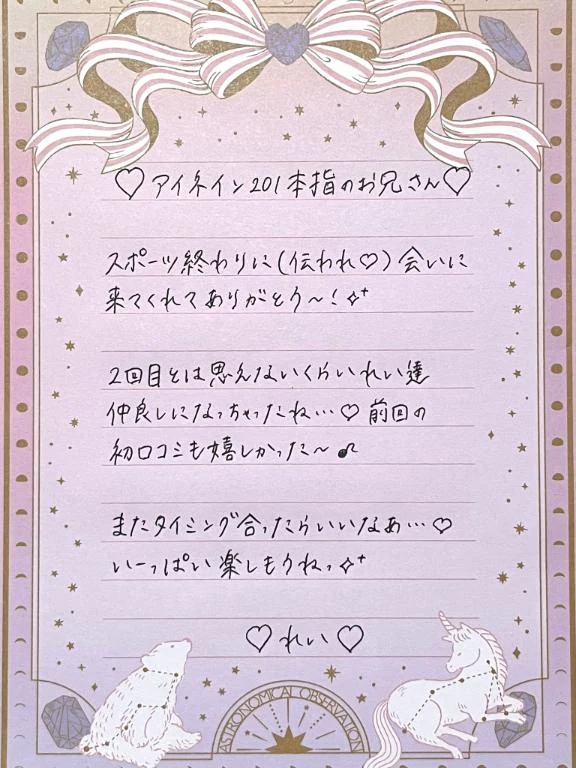 ♡アイネイン201本指のお兄さん♡
スポーツ終わりに(伝われ♡)会いに
来てくれてありがとう〜!✧⁺
2回目とは思えないくらいれい達
仲良しになっちゃったね…♡前回の
初口コミも嬉しかった〜♪
またタイミング合ったらいいなぁ…♡
いーっぱい楽しもうねっ✧⁺
♡れい♡
ASTRONOMICAL OBSERVATION